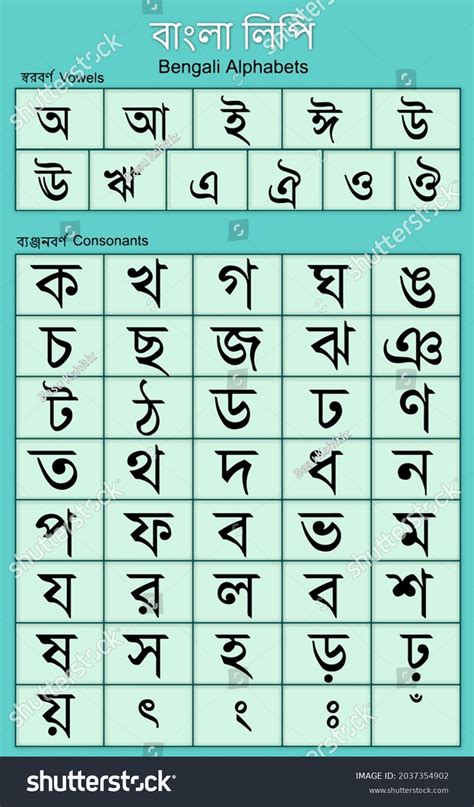 বাংলা লিপি
Bengali Alphabets
স্বরবর্ণ Vowels
অ আ ই ঈ উ
ঊ ঋ এ ঐ ও ঔ
ব্যঞ্জনবর্ণ Consonants
ক খ গ ঘ ঙ
চ ছ জ ঝ ঞ
ট ঠ ড ঢ ণ
ত থ দ ধ ন
প ফ ব ভ ম
য র ল ব শ
ষ স হ ড় ঢ়
য় ৎ ং ঃ ঁ
shutterstock
IMAGE ID: 2037354902
www.shutterstock.com